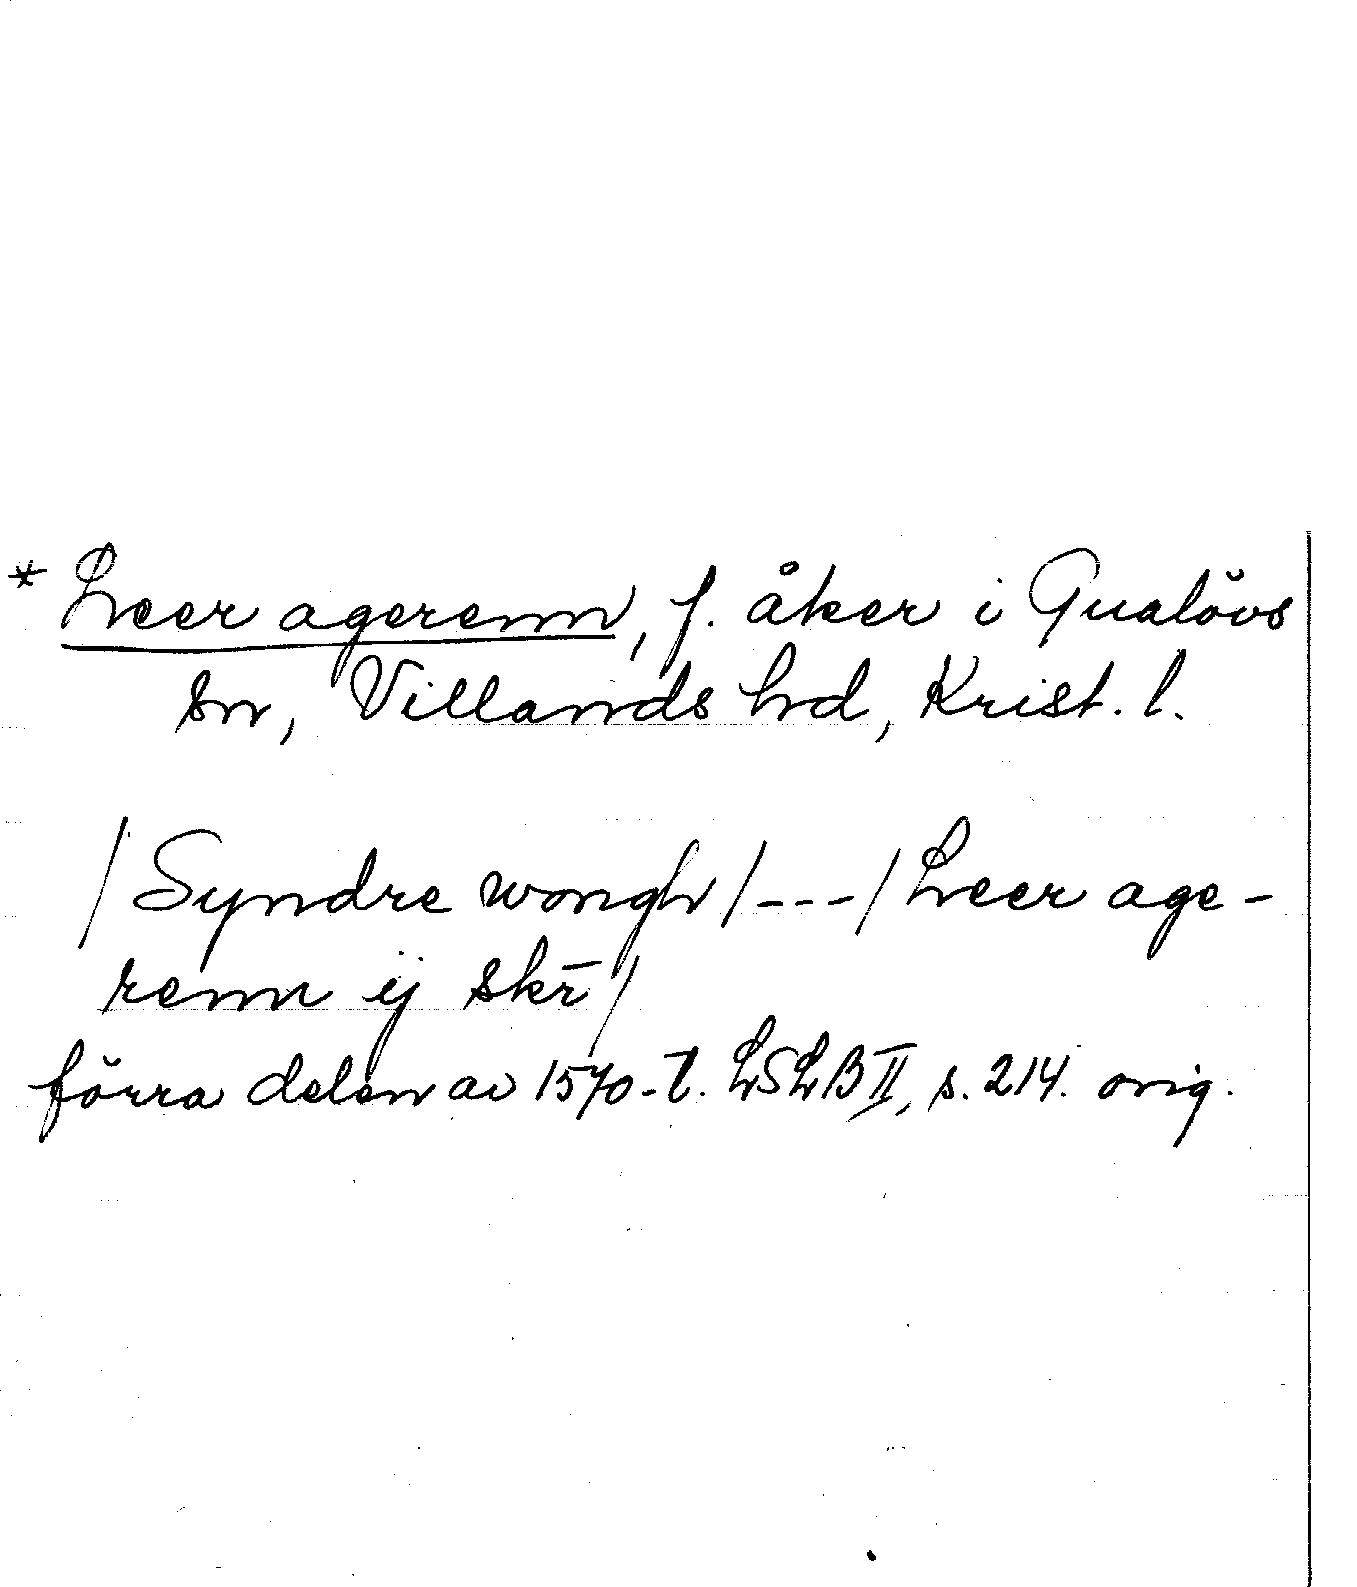 * Leer agerenn, f. åker i Gualövs
sn, Villands hd, Krist. l.
/ Syndre wongh / --- / Leer age-
renn ij skr̄ /
förra delen av 1570-t. LSLB II, s. 214. orig.